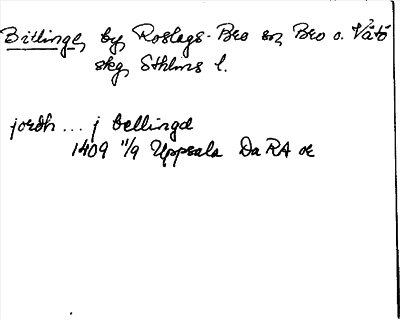 Billinge, by, Roslags-Bro sn, Bro o. Vätö
skg, Sthlms l.
jordh ... j bellingæ
1409 11/9 Uppsala DaRA or